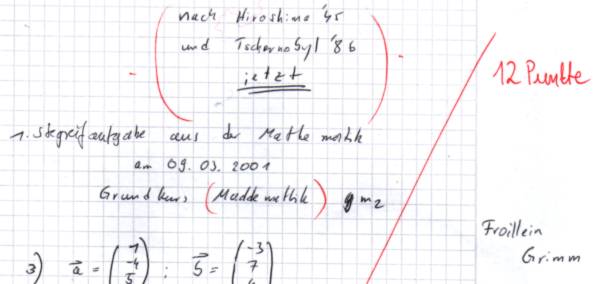 nach Hiroshima '45
und Tschernobyl '86
jetzt
12 Punkte
1. Stegreifaufgabe aus der Mathematik
am 09.03.2001
Grundkurs (Maddemathik) gm2
Froillein
Grimm
3) a⃗ = (1 -4 5) ; b⃗ = (-3 7